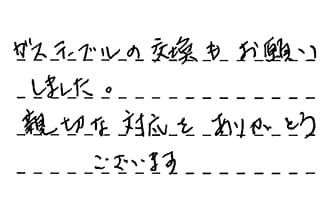 ガステーブルの交換もお願い
しました。
親切な対応をありがとう
ございます